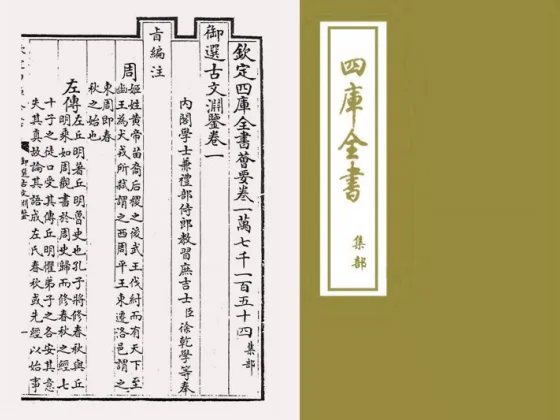 欽定四庫全書薈要卷一萬七千一百五十四 集部
御選古文淵鑒卷一
內閣學士兼禮部侍郎教習庶吉士臣徐乾學等奉
旨編注
周 姬姓黄帝苗裔后稷之後武王伐紂而有天下至
幽王為犬戎所弒謂之西周平王東遷洛邑謂之
東周即春
秋之始也
左傳 左丘明著丘明魯史也孔子將修春秋與丘
明乘如周觀書於周史歸而修春秋之經七
十子之徒口受其傳丘明懼弟子之各安其意
失其真故論其語成左氏春秋或先經以始事
御選古文淵鑒
四庫全書
集部